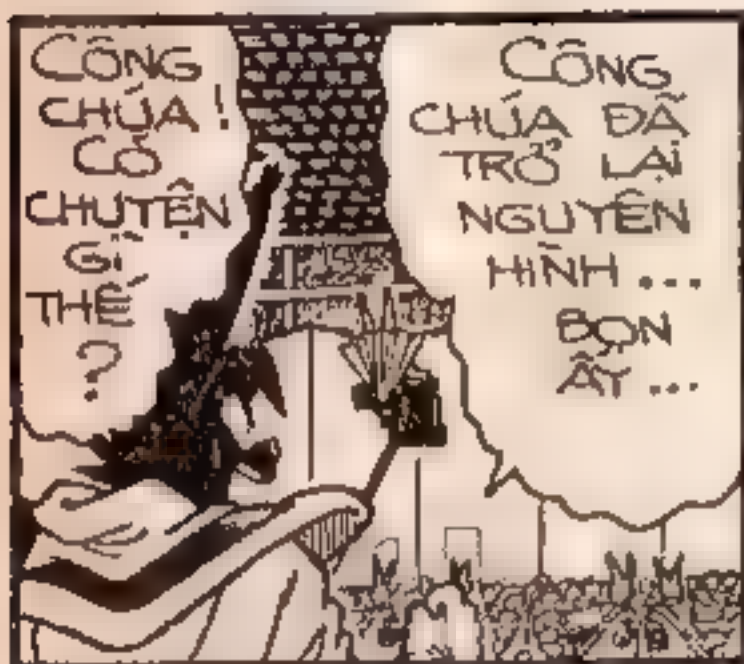 CÔNG
CHÚA!
CÓ
CHUYỆN
GÌ
THẾ
?
CÔNG
CHÚA ĐÃ
TRỞ LẠI
NGUYÊN
HÌNH...
BỌN
ẤY...